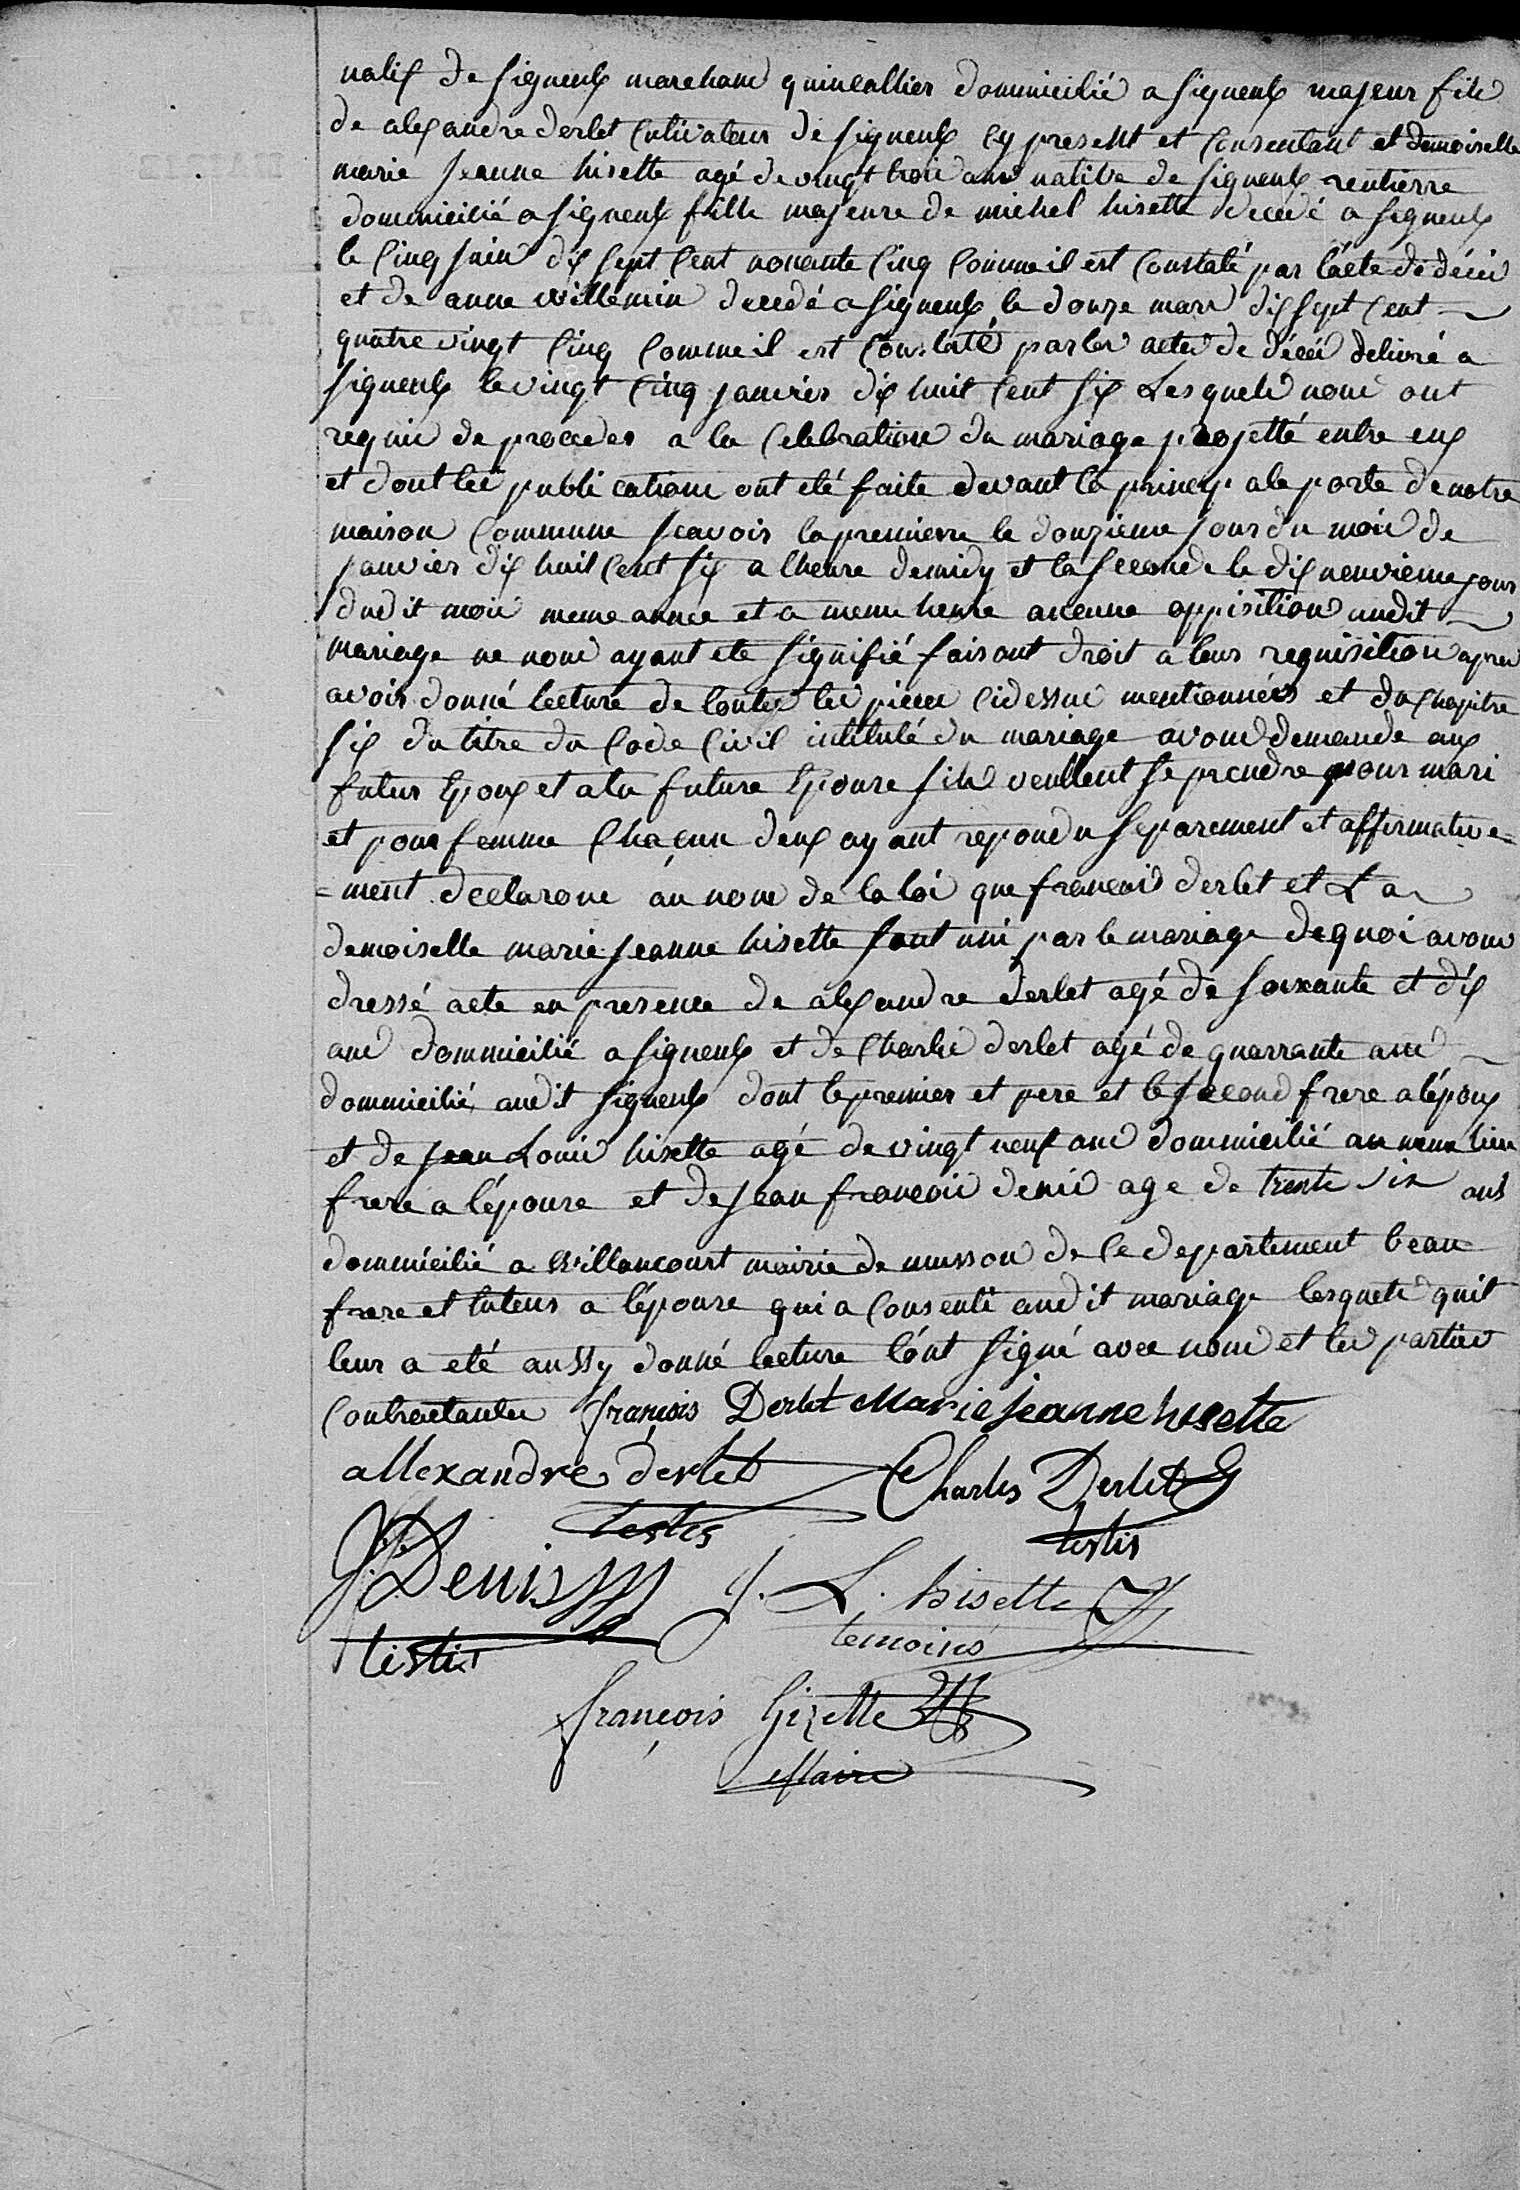 natif de signeulx marchand quincallier dommicilié a signeulx majeur fils
de alexandre derlet cultivateur de signeulx cy present et consentant et demoiselle
marie jeanne hisette agé de vingt trois ans native de signeulx rentierre
dommicilié a signeulx fille majeure de michel hisette decedé a signeulx
le cinq juin dix sept cent nonante cinq comme il est constaté par l'acte de décès
et de anne willemin decedé a signeulx le douze mars dix sept cent
quatre vingt cinq comme il est constaté par les actes de décès delivré a
signeulx le vingt cinq janvier dix huit cent six Lesquels nous ont
requis de proceder a la celebration du mariage projetté entre eux
et dont les publications ont eté faite devant la principale porte de notre
maison commune scavoir la premierre le douzieme jour du mois de
janvier dix huit cent six a lheure de midy et la seconde le dix neuvieme jour
dudit mois meme année et a meme heure aucune oppisition audit
mariage ne nous ayant ete signifié faisant droit a leur requisition apres
avoir donné lecture de toutes les pieces cidessus mentionnées et du chapitre
six du titre du code civil intitulé du mariage avons demande aux
futur Epoux et a la future Epouse sils veullent se prendre pour mari
et pour femme chaçun deux ayant repondu separement et affirmative=
=ment declarons au nom de la loi que francois derlet et La
demoiselle marie jeanne hisette sont uni par le mariage de quoi avons
dressé acte en presence de alexandre derlet agé de soixante et dix
ans dommicilié a signeulx et de charles derlet agé de quarrante ans
dommicilié audit signeulx dont le premier et pere et le second frere a lépoux
et de jean Louis hisette agé de vingt neuf ans dommicilié au meme lieu
frere a lépouse et de jean francois denis age de trente six ans
dommicilié a willancourt mairie de musson de ce departement beau
frere et tuteur a lépouse qui a consenti audit mariage lesquels quil
leur a eté aussy donné lecture lont signé avec nous et les parties
contractantes françois Derlet Marie jeanne hisette
allexandre derlet Charles Derlet
testis testis
J.f. Denis J. L. hisette
testis temoins
françois hizette
Maire